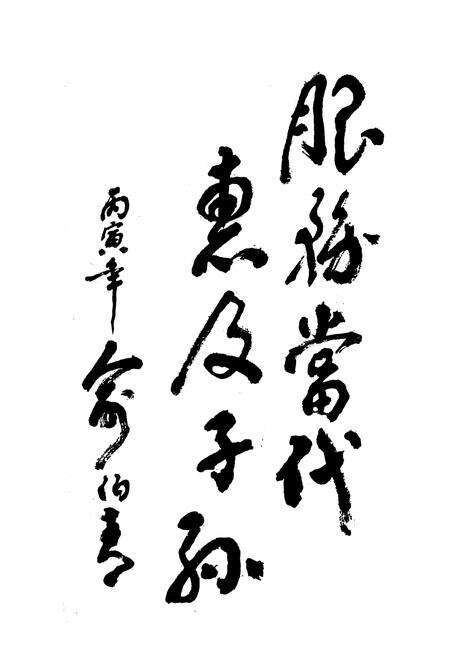 服務當代
惠及子孫
丙寅年 俞伯青